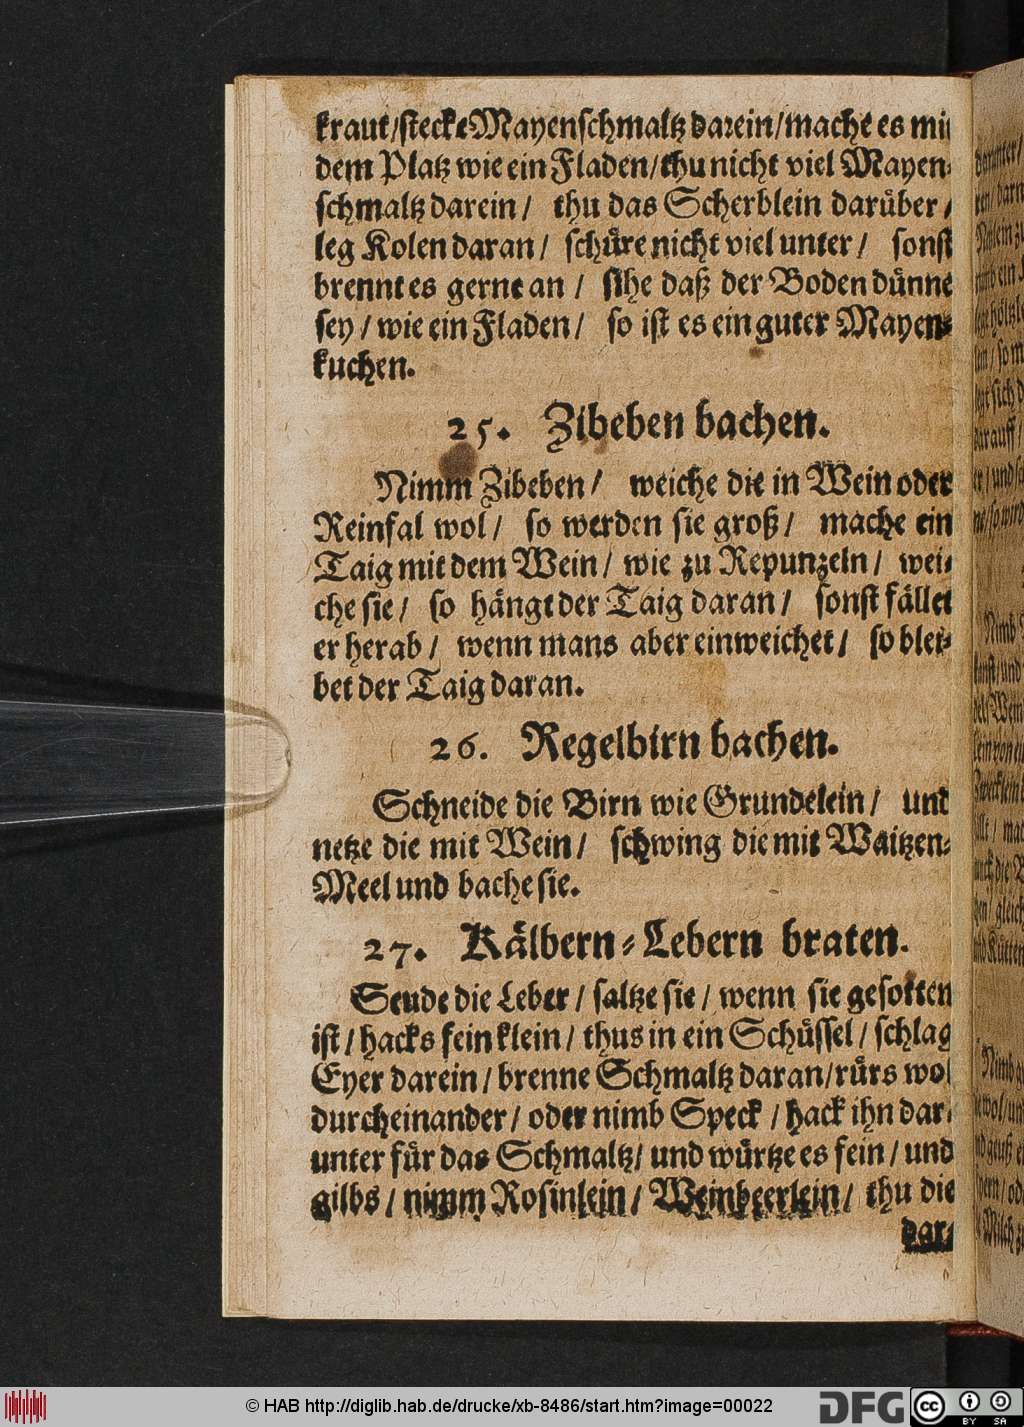 kraut/stecke Mayenschmaltz darein/mache es mit
dem Platz wie ein Fladen/thu nicht viel Mayen-
schmaltz darein/ thu das Scherblein darüber/
leg Kolen daran/ schüre nicht viel unter/ sonst
brennt es gerne an/ sihe daß der Boden dünne
sey/wie ein Fladen/ so ist es ein guter Mayen-
kuchen.
25. Zibeben bachen.
Nimm Zibeben/ weiche die in Wein oder
Reinfal wol/ so werden sie groß/ mache ein
Taig mit dem Wein/ wie zu Repunzeln/ wei-
che sie/ so hängt der Taig daran/ sonst fället
er herab/ wenn mans aber einweichet/ so blei-
bet der Taig daran.
26. Regelbirn bachen.
Schneide die Birn wie Grundelein/ und
netze die mit Wein/ schwing die mit Waitzen-
Meel und bache sie.
27. Kälbern-Lebern braten.
Seude die Leber/saltze sie/wenn sie gesotten
ist/hacks fein klein/thus in ein Schüssel/schlag
Eyer darein/brenne Schmaltz daran/rürs wol
durcheinander/oder nimb Speck/hack ihn dar-
unter für das Schmaltz/und würtze es fein/und
gilbs/nimm Rosinlein/Weinbeerlein/thu die
dar-
© HAB http://diglib.hab.de/drucke/xb-8486/start.htm?image=00022
DFG
cc
BY SA